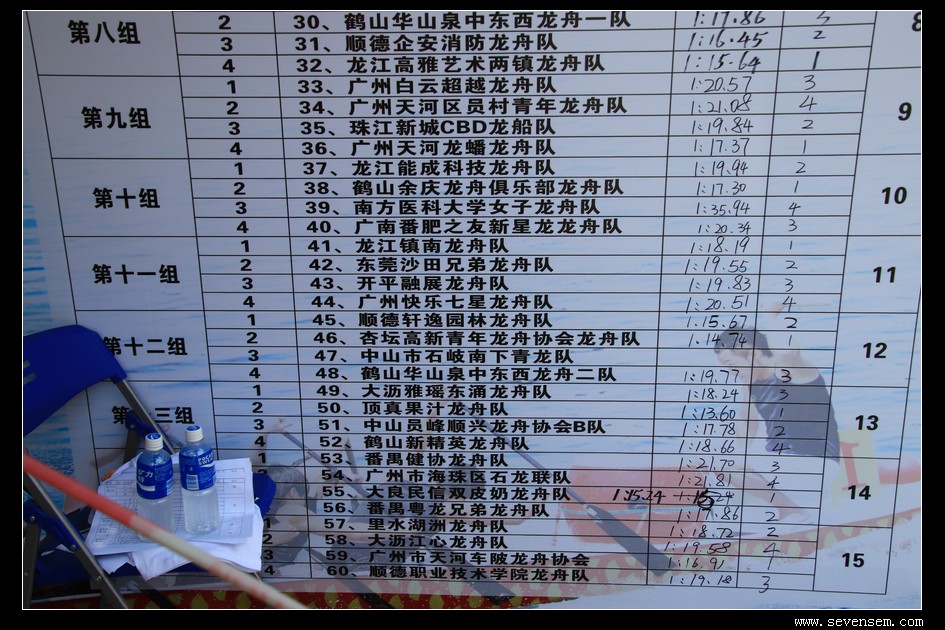 第八组 2 30、鹤山华山泉中东西龙舟一队 1:17.86 8
3 31、顺德企安消防龙舟队 1:16.45 2
4 32、龙江高雅艺术两镇龙舟队 1:15.64 1
第九组 1 33、广州白云超越龙舟队 1:20.57 3 9
2 34、广州天河区员村青年龙舟队 1:21.08 4
3 35、珠江新城CBD龙船队 1:19.84 2
4 36、广州天河龙蟠龙舟队 1:17.37 1
第十组 1 37、龙江能成科技龙舟队 1:19.94 2 10
2 38、鹤山余庆龙舟俱乐部龙舟队 1:17.30 1
3 39、南方医科大学女子龙舟队 1:35.94 4
4 40、广南番肥之友新星龙龙舟队 1:20.34 3
第十一组 1 41、龙江镇南龙舟队 1:18.19 1 11
2 42、东莞沙田兄弟龙舟队 1:19.55 2
3 43、开平融展龙舟队 1:19.83 3
4 44、广州快乐七星龙舟队 1:20.51 4
第十二组 1 45、顺德轩逸园林龙舟队 1.15.67 2 12
2 46、杏坛高新青年龙舟协会龙舟队 1.14.74 1
3 47、中山市石岐南下青龙队
4 48、鹤山华山泉中东西龙舟二队 1:19.77 3
第 三组 1 49、大沥雅瑶东涌龙舟队 1:18.24 3 13
2 50、顶真果汁龙舟队 1:13.60 1
3 51、中山员峰顺兴龙舟协会B队 1:17.78 2
4 52、鹤山新精英龙舟队 1:18.66 4
1 53、番禺健协龙舟队 1:21.70 3 14
54、广州市海珠区石龙联队 1:21.81 4
55、大良民信双皮奶龙舟队 1:15.24 1
56、番禺粤龙兄弟龙舟队 1:17.86 2
1 57、里水湖洲龙舟队 1:18.72 2 15
58、大沥江心龙舟队 1:19.58 4
59、广州市天河车陂龙舟协会 1:16.91 1
4 60、顺德职业技术学院龙舟队 1:19.18 3
POCARI SWEAT
www.sevensem.com